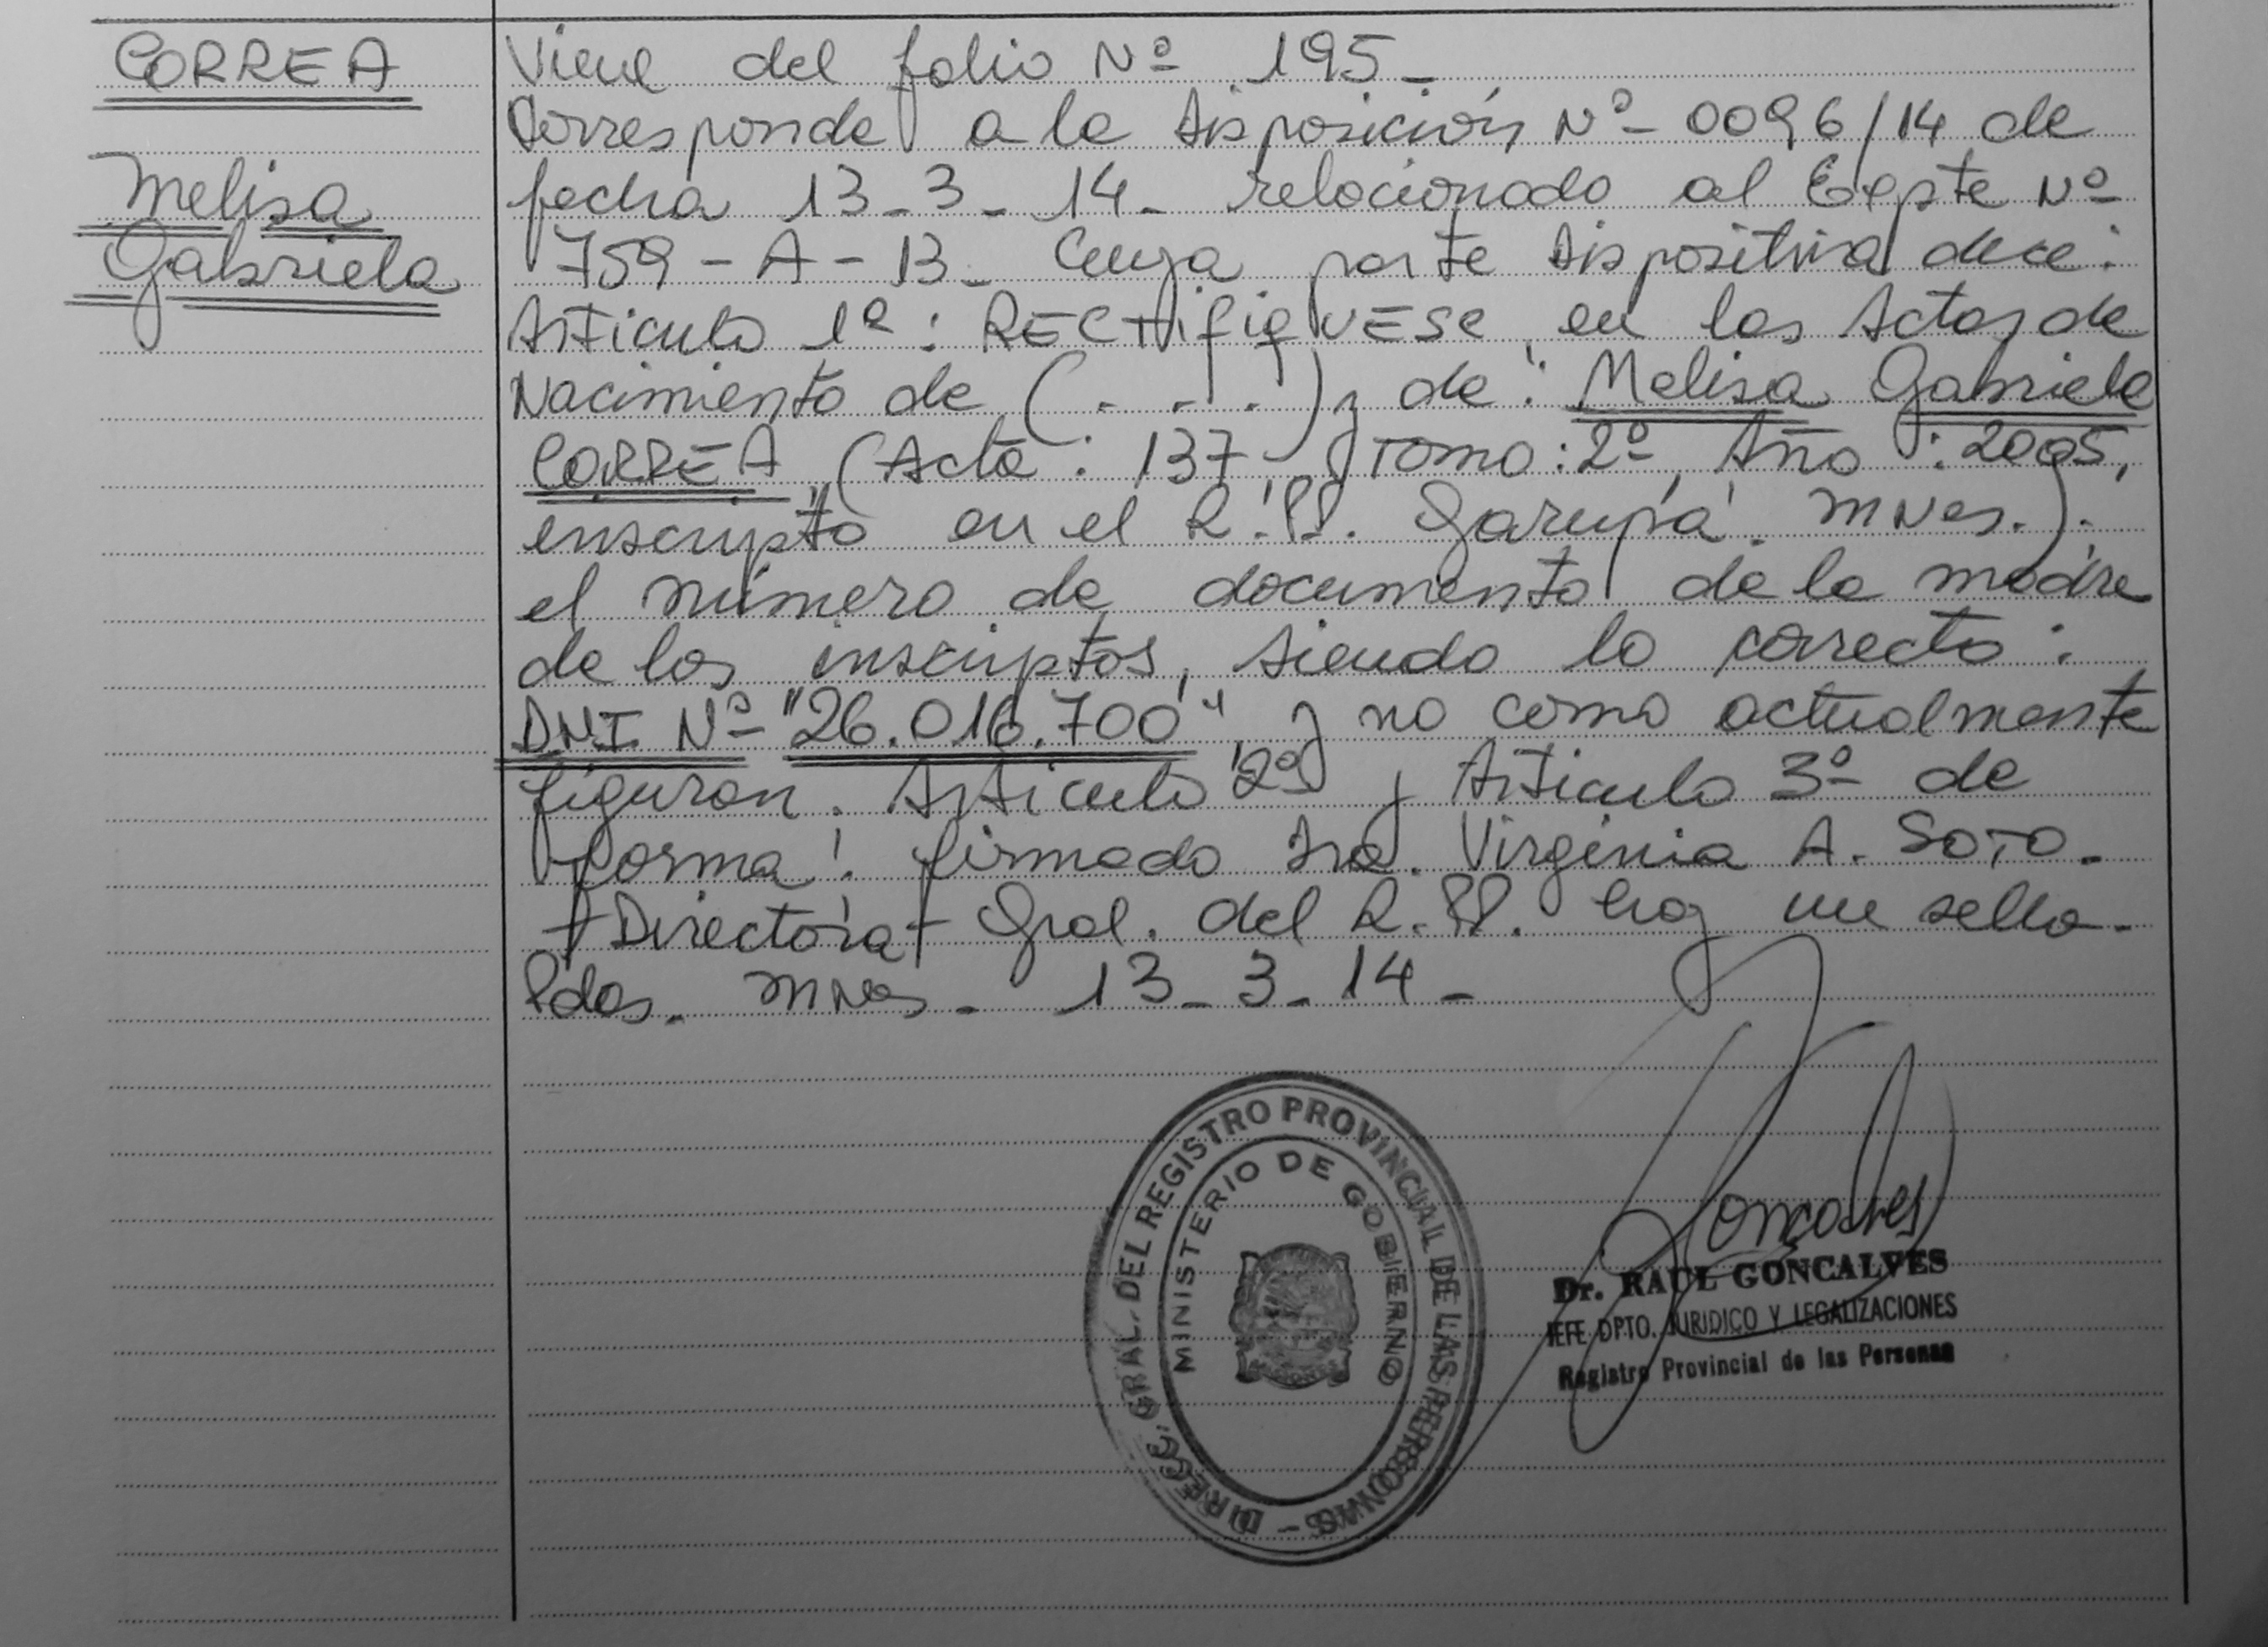 CORREA
Melisa
Gabriela
Viene del folio Nº 195_
Corresponde a la disposición Nº 0096/14 de
fecha 13_3_14_ relacionado al Expte Nº
759-A-13_ Cuya parte dispositiva dice:
Articulo 1º: RECTIFIQUESE en las Actas de
Nacimiento de (. . .) y de: Melisa Gabriela
CORREA (Acta: 137, Tomo: 2º, Año: 2005,
inscripta en el R.PP. Garupá. Mnes.).
el número de documento de la madre
de los inscriptos, siendo lo correcto:
DNI Nº "26.016.700" y no como actualmente
figuran. Articulo 2º y Articulo 3º de
forma. firmado Dra. Virginia A. SOTO.
Directora Gral. del R.PP. hay un sello.
Pdas. Mnes_ 13_3_14_
DIRECC. GRAL. DEL REGISTRO PROVINCIAL DE LAS PERSONAS -
MINISTERIO DE GOBIERNO
Goncalves
Dr. RAUL GONCALVES
JEFE DPTO. JURIDICO Y LEGALIZACIONES
Registro Provincial de las Personas